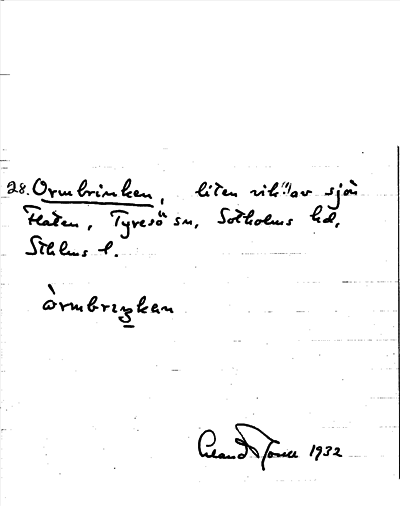 28. Ormbrinken, liten vik av sjön
Flaten, Tyresö sn, Sotholms hd,
Sthlms l.
òrmbrıŋkan
Erland 1932